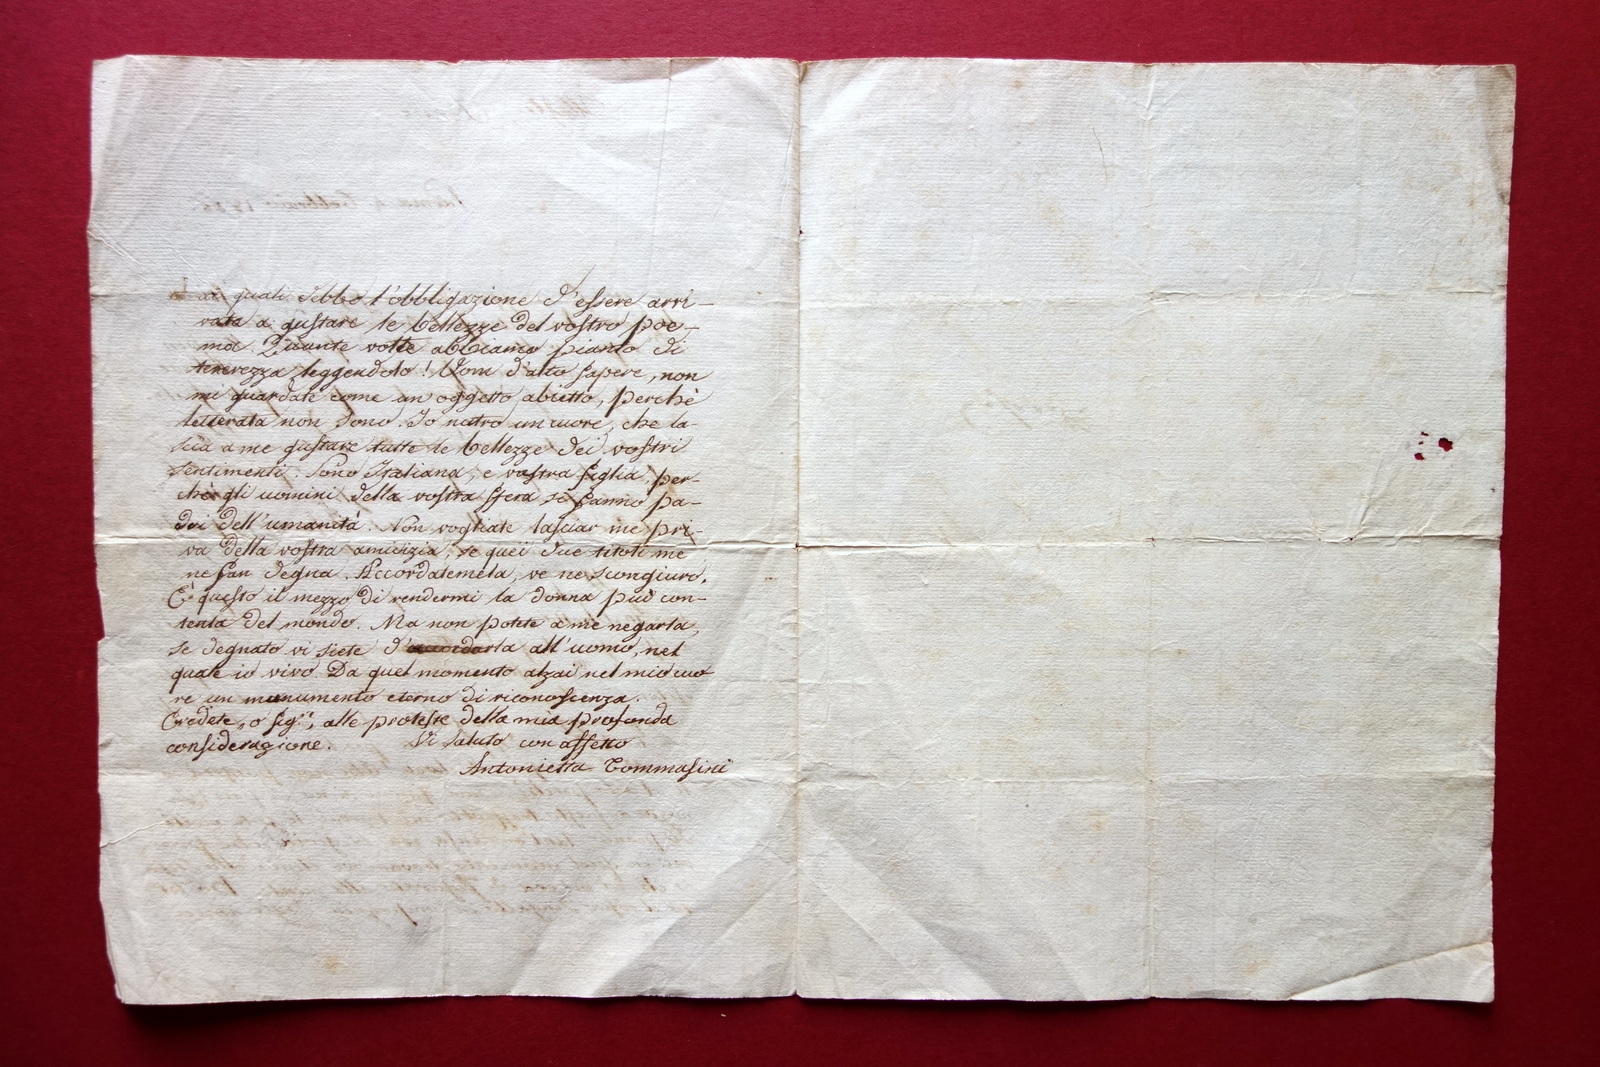 ai quali debbo l'obbligazione d'essere arri-
vata a gustare le bellezze del vostro poe-
ma. Quante volte abbiamo pianto di
tenerezza leggendolo! Uom d'alto sapere, non
mi guardate come un oggetto abietto, perchè
letterata non sono. Io nutro un cuore, che la-
scia a me gustare tutte le bellezze dei vostri
sentimenti. Sono Italiana, e vostra figlia, per-
chè gli uomini della vostra sfera si fanno pa-
dri dell'umanità. Non vogliate lasciar me pri-
va della vostra amicizia, se quei due titoli me
ne fan degna. Accordatemela, ve ne scongiuro.
È questo il mezzo di rendermi la donna più con-
tenta del mondo. Ma non potete a me negarla,
se degnato vi siete d'accordarla all'uomo, nel
quale io vivo. Da quel momento alzai nel mio cuo
re un monumento eterno di riconoscenza.
Credete, o Sig.r, alle proteste della mia profonda
considerazione. Vi saluto con affetto
Antonietta Tommasini